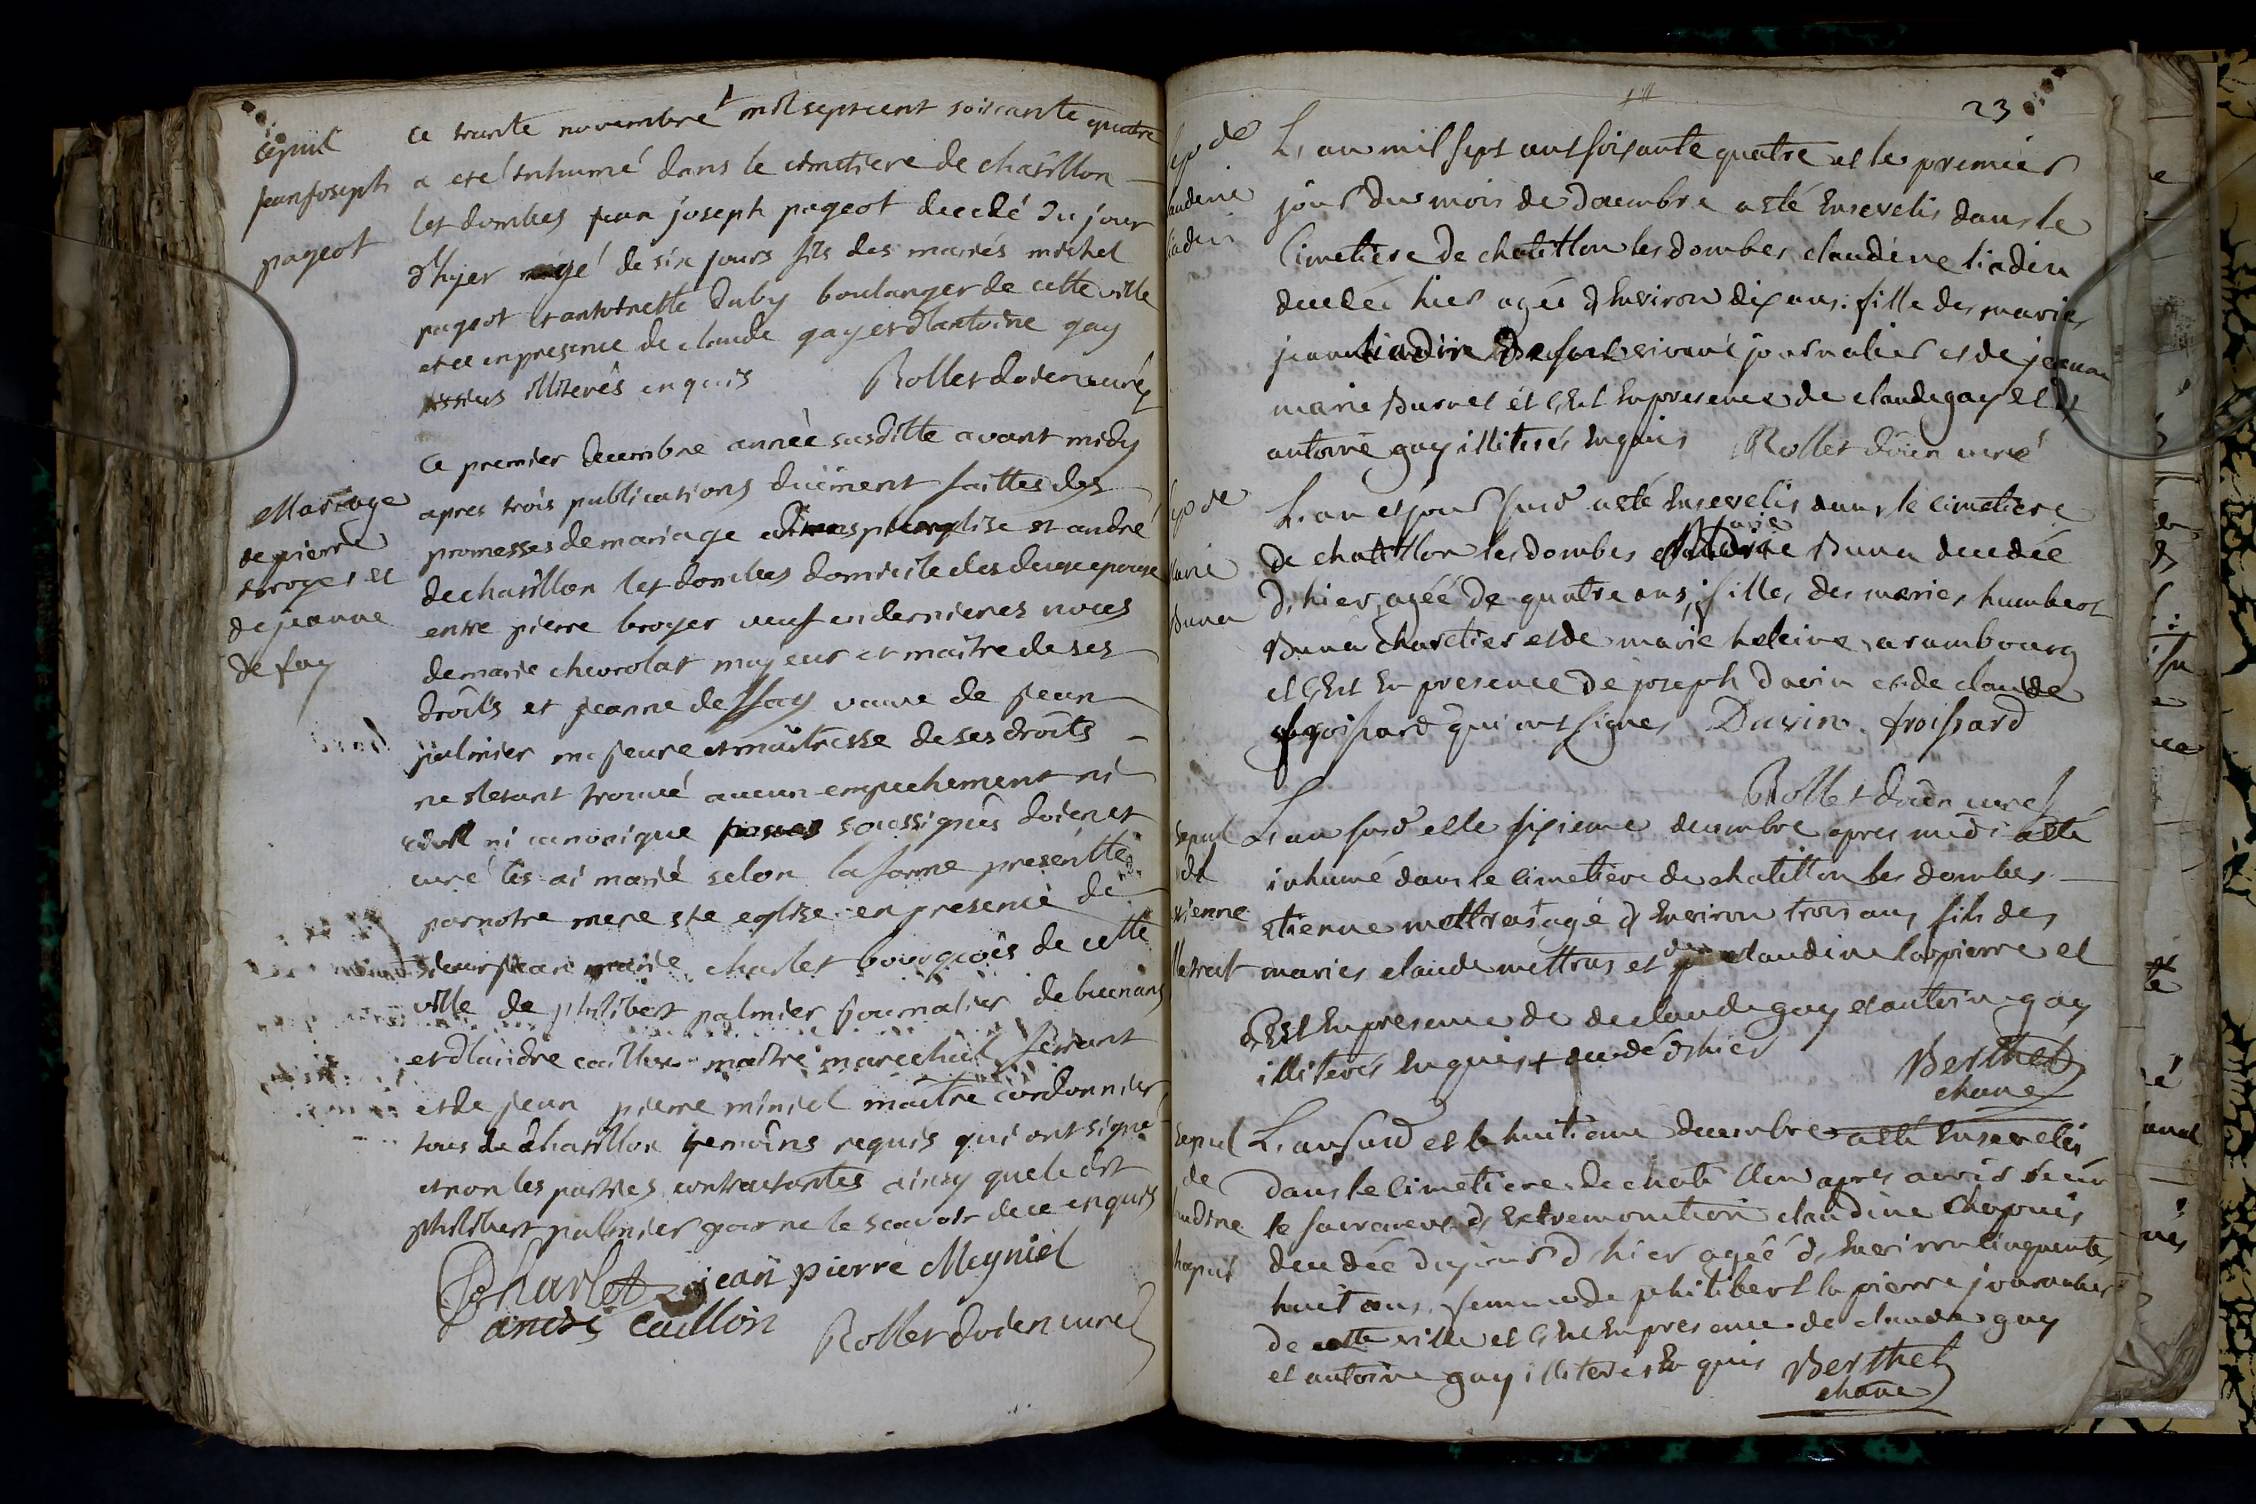 sepult
jean joseph
pageot
ce trante novembre mil sept cent soixante quatre
a eté inhumé dans le cimetiere de chatillon
les dombes jean joseph pageot decedé du jour
d'hyer agé de six jours fils des mariés michel
pageot et antoinette duby boulanger de cette ville
et ce en presence de claude gay et d'antoine gay
illiterés enquis Rollet doien curé
Mariage
de pierre
broyer et
de jeanne
de fay
ce premier decembre année susditte avant midy
apres trois publications duëment faittes des
promesses de mariage eglise st andré
de chatillon les dombes domicile des deux epoux
entre pierre broyer veuf en dernieres noces
de marie chevrolat majeur et maître de ses
droits et jeanne de fay veuve de jean
palmier majeure et maîtresse de ses droits
ne s'etant trouvé aucun empechement ni
civil ni canonique soussignés doien et
curé les ai marié selon la forme presentte
par notre mere ste eglise en presence de
sieur jean marie charlet bourgeois de cette
ville de philibert palmier journalier de buenans
et d'andré caillon maître marechal ferrant
et de jean pierre miniel maître cordonnier
tous de chatillon temoins requis qui ont signé
et non les parties contractantes ainsy que ledit
philibert palmier pour ne le scavoir de ce enquis
Charlet jean pierre Meyniel
andré Caillon Rollet doien curé
23
sep de
laudine
liadin
L'an mil sept cent soixante quatre et le premier
jour du mois de decembre a esté ensevelis dans le
cimetiere de chatillon les dombes claudine liadin
decedée hier agée d'environ dix ans fille des maries
jean liadin journalier et de jeanne
marie Burnet et c'est en presence de claude gay et
antoine gay illiterés enquis Rollet doien curé
sep de
Marie
Buna
L'an et jour susd a esté ensevelis dans le cimetiere
de chatillon les dombes Marie Buna decedée
d'hier agéé de quatre ans, filles des maries humbert
Buna charetier et de marie heleine arambourg
et c'est en presence de joseph Davin et de claude
froissard qui ont signes Davin froissard
Rollet doien curé
Sepul
de
etienne
Mettrat
L'an susd et le sixieme decembre apres midi a esté
inhumé dans le cimetiere de chatillon les dombes
etienne mettras agé d'environ trois ans fils des
maries claude mettras et de claudine lapierre et
c'est en presence de de claude gay et antoine gay
illiterés enquis + decedé d'hier
Berthet
chane
Sepul
de
claudine
chapuis
L'an susd et le huitieme decembre a esté ensevelis
dans le cimetiere de chatillon apres avoir recu
le sacrement d'extremonction claudine Chapuis
decedée du jour d'hier agéé d'environ cinquante
huit ans femme de philibert lapierre journalier
de cette ville et c'est en presence de claude gay
et antoine gay illiterés enquis Berthet
chane